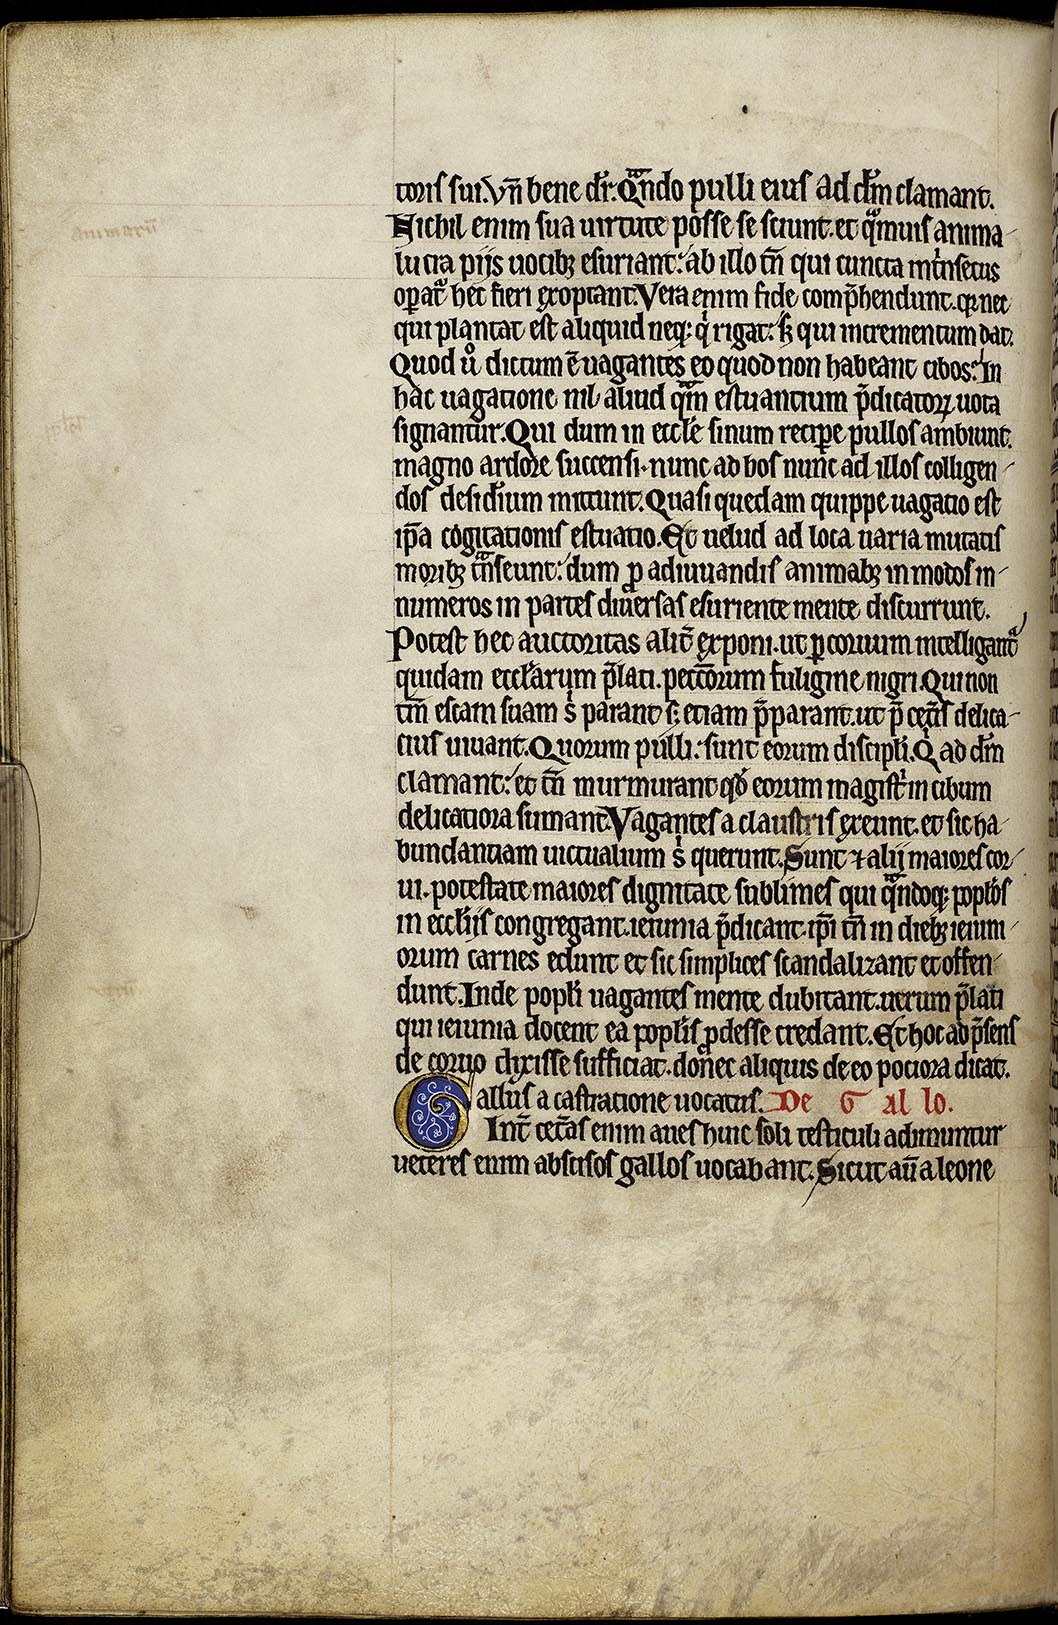 toris sui. Vn̄ bene dr̄. Qᵃndo pulli eius ad dm̄ clamant.
Nichil enim sua uirtute posse se sciunt. et qᵃmuis anima-
lucra pijs uocibꝫ esuriant: ab illo tn̄ qui cuncta int̄nsecus
oꝑatᵃ hec fieri exoptant. Vera enim fide comp̄hendunt. qꝛ nec
qui plantat est aliquid neqꝫ qⁱ rigat: sꝫ qui incrementum dat.
Quod uͦ dictum ē uagantes eo quod non habeant cibos: In
hac uagatione nil aliud qᵃm estuantium p̄dicatoꝝ uota
signantur. Qui dum in eccl̄e sinum reciꝑe pullos ambiunt.
magno ardore succensi. nunc ad hos nunc ad illos colligen-
dos desid̄ium mittunt. Quasi quedam quippe uagatio est
ip̄a cogitationis estuatio. Et uelud ad loca uaria mutatis
moribꝫ tᵃnseunt: dum ꝓ adiuuandis animabꝫ in modos in-
numeros in partes diuersas esuriente mente discurrunt.
Potest hec auctoritas alit̄ exponi. ut ꝑ coruum intelligantᵃ
quidam eccl̄arum p̄lati. pecc̄torum fuligine nigri. Qui non
tm̄ escam suam s̄ parant sꝫ etiam p̄parant. ut p̄ cet̄is delica-
cius uiuant. Quorum pulli: sunt eorum discipl̄i. Qⁱ ad dm̄
clamant: et tn̄ murmurant qd̄ eorum magistⁱ in cibum
delicatiora sumant. Vagantes a claustris exeunt. et sic ha-
bundantiam uictualium s̄ querunt. Sunt ⁊ alij maiores cor-
ui. potestate maiores dignitate sublimes qui qᵃndoqꝫ popl̄os
in eccl̄ijs congregant. ieiunia p̄dicant. ip̄i tn̄ in diebꝫ ieiuni-
orum carnes edunt et sic simplices scandalizant et offen-
dunt. Inde popl̄i uagantes mente dubitant. utrum p̄lati
qui ieiunia docent ea popl̄is ꝓdesse credant. Et hoc ad p̄sens
de coruo dixisse sufficiat. donec aliquis de eo pociora dicat.
Gallus a castratione uocatus. De Gallo.
Int̄ cet̄as enim aues huic soli testiculi adimuntur
ueteres enim abscisos gallos uocabant. Sicut aū a leone